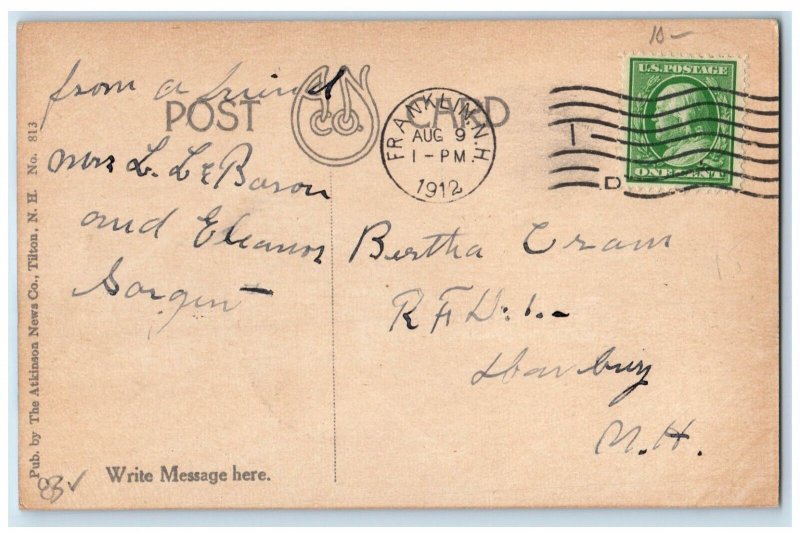 10-
from a friend
POST CARD
A N Co.
FRANKLIN, N.H.
AUG 9
1-PM
1912
U.S. POSTAGE
ONE CENT
D
Mrs L. LeBaron
and Eleanor
Sargent
Bertha Cram
R F D. 1.-
Danbury
N.H.
Pub. by The Atkinson News Co., Tilton, N. H. No. 813
Write Message here.